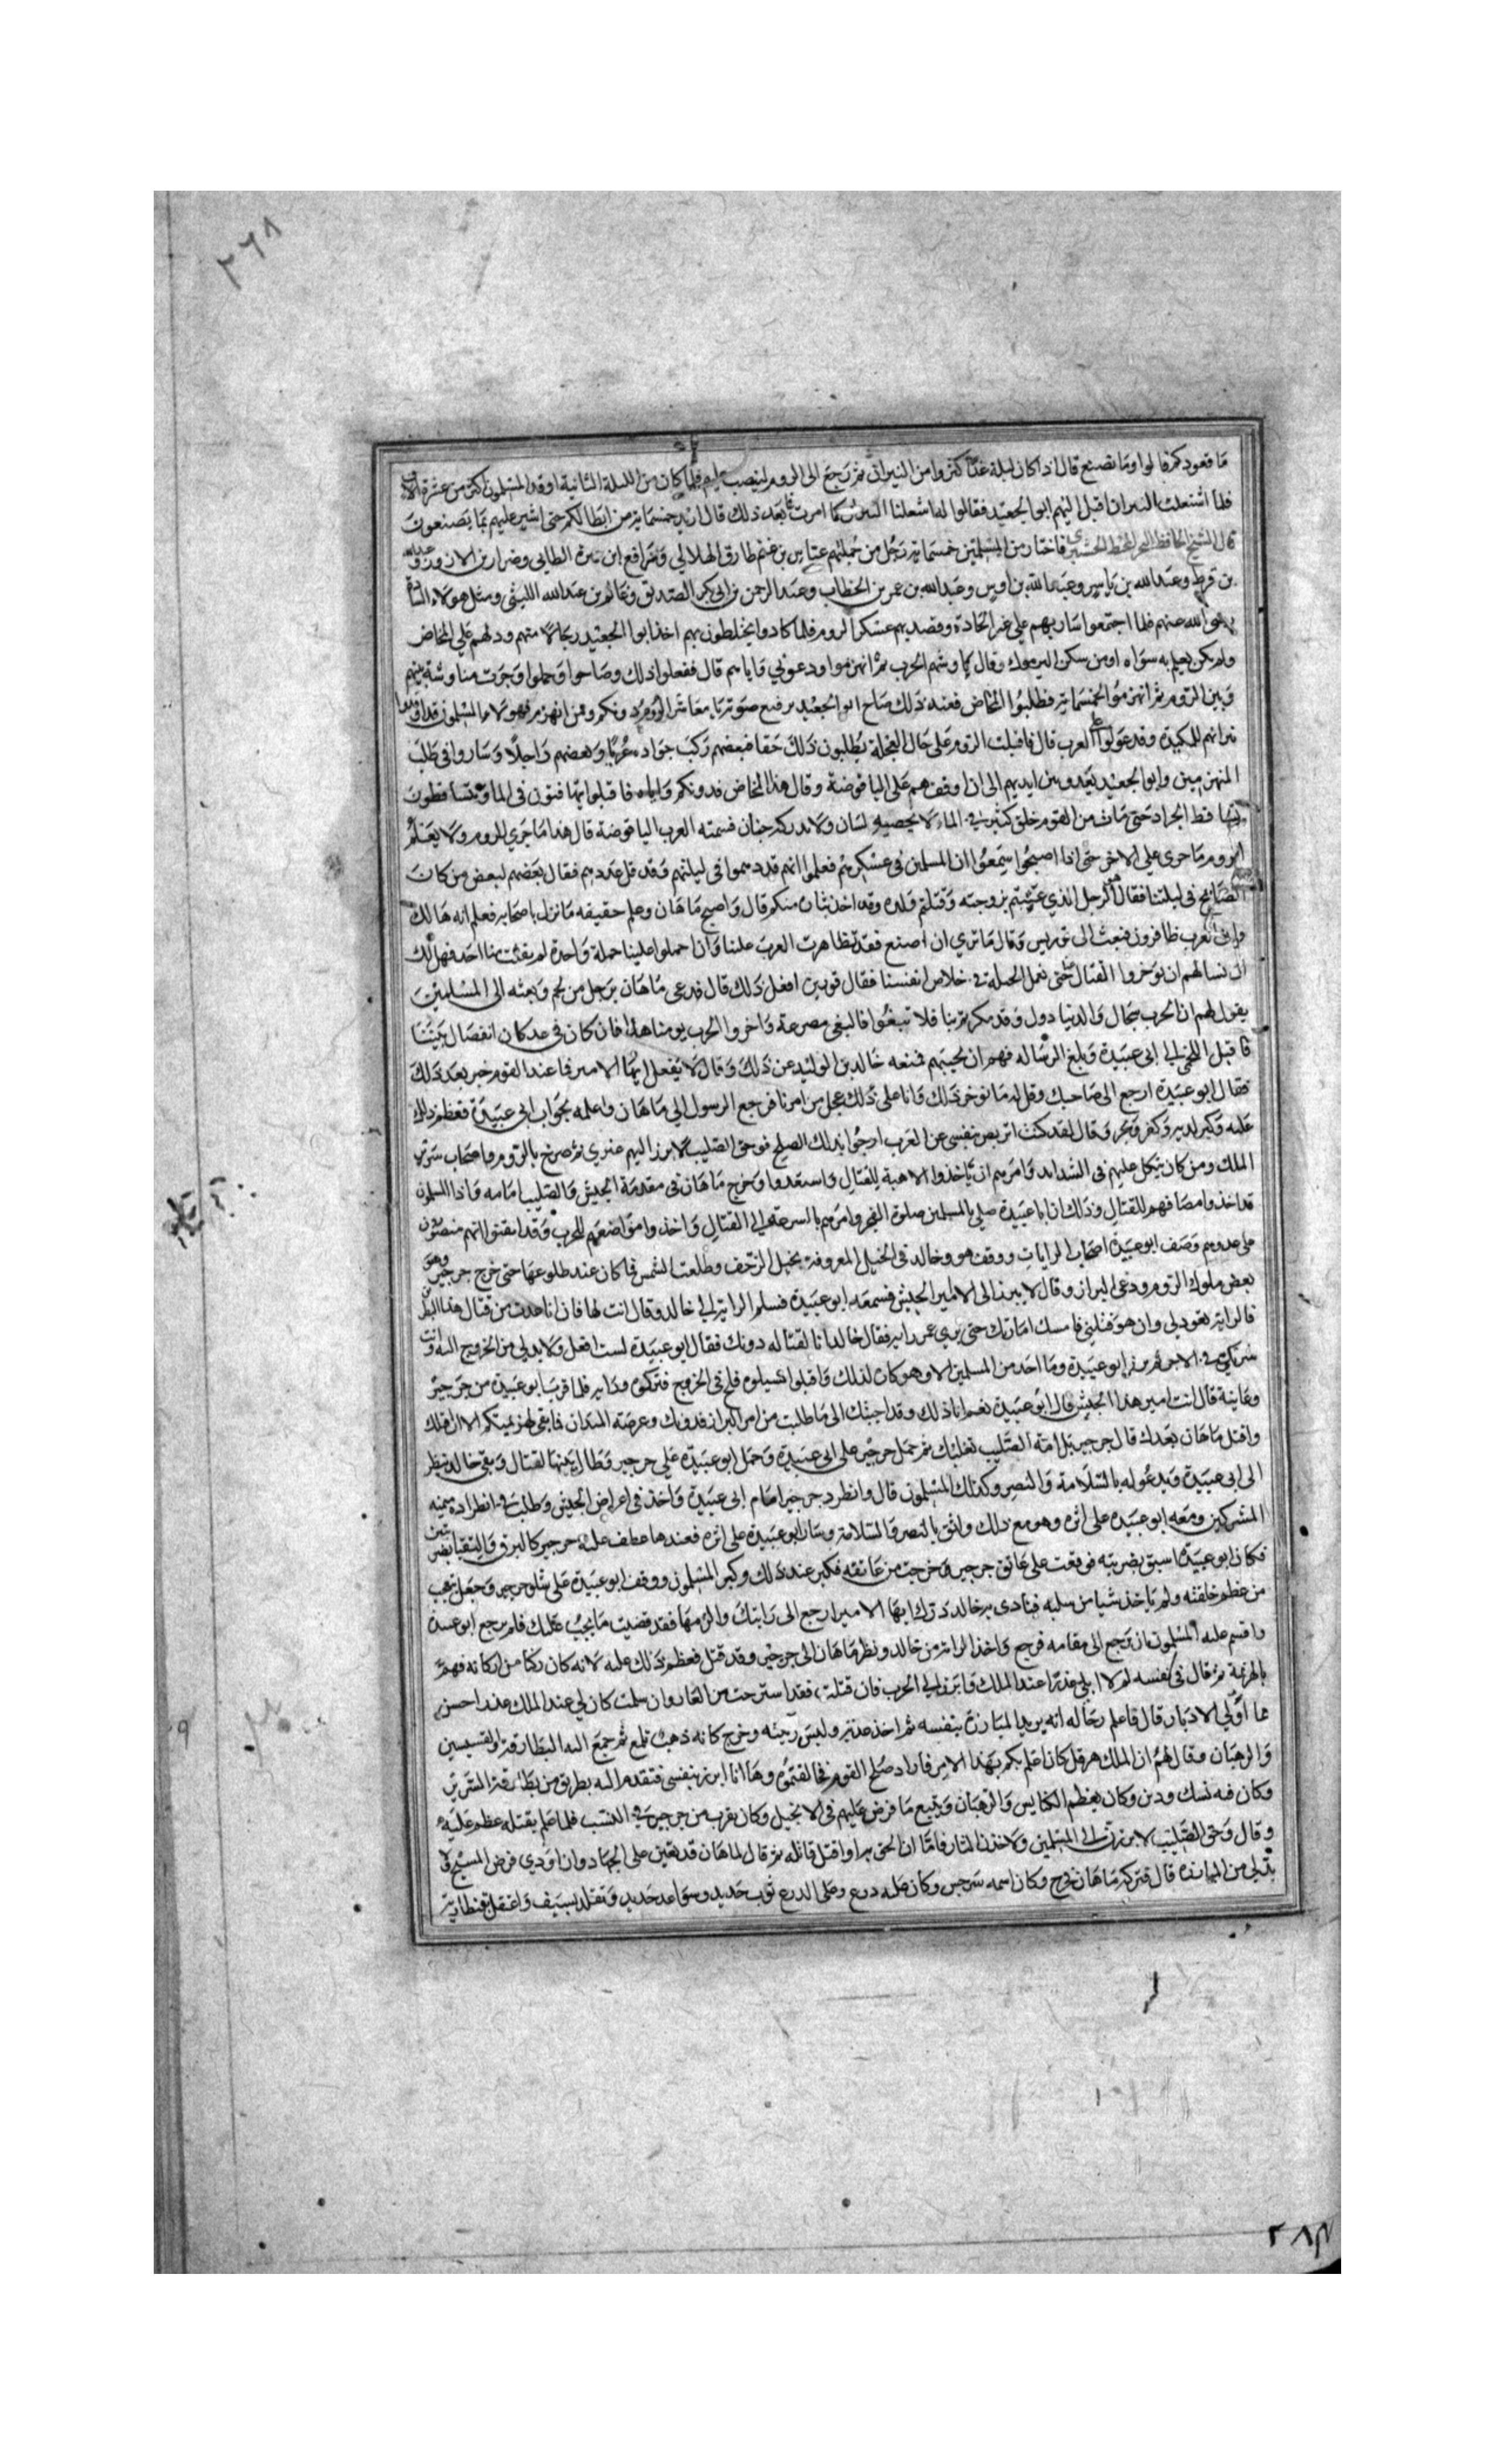 ٢٦٨
ما قعودكم قالوا وما نصنع قال اذا كان ليلة غدا كثروا من النيران ثم رجع الى الروم لينصب عليهم فلما كان من الليلة الثانية اوقد المسلمون اكثر من عشرة الاف
فلما اشتعلت النيران اقبل اليهم ابو الجعيد فقالوا له اشعلنا النيران كما امرت فما بعد ذلك قال اريد خمسماية من ابطالكم حتى اشير عليهم بما يصنعون
قال الشيخ الحافظ فاختار من المسلمين خمسماية رجل من جملتهم عياس بن غنم طارق الهلالي ورافع ابن عميرة الطايي وضرار بن الازور وعبدالله
بن قرط وعبد الله بن ياسر وعبد الله بن اوس وعبد الله بن عمر بن الخطاب وعبد الرحمن بن ابي بكر الصديق وغانم بن عبد الله الليثي ومثل هولاء السادة
رضي الله عنهم فلما اجتمعوا سار بهم على غير الجادة وقصد بهم عسكر الروم فلما كادوا يختلطون بهم اخذ ابو الجعيد رجالا منهم ودلهم على المخاض
ولم يكن يعلم به سواه او من سكن اليرموك وقال لهم اوشهم الحرب ثم انهزموا ودعوني واياهم قال ففعلوا ذلك وصاحوا وحملوا وجرت مناوشة بينهم
وبين الروم ثم انهزموا الخمسماية فطلبوا المخاض فعند ذلك صاح ابو الجعيد برفيع صوته يا معاشر الروم دونكم ومن انهزم فهولاء المسلمون قد اوقدوا
نيرانهم للمكيدة وقد عولوا العرب قال فاقبلت الروم على حال العجلة يطلبون ذلك حقا فبعضهم ركب جواده عريا وبعضهم راجلا وساروا في طلب
المنهزمين وابو الجعيد يعدو بين ايديهم الى ان اوقفهم على الياقوصة وقال هذا المخاض فدونكم واياه فاقبلوا يتهافتون في الما ويتساقطون
تساقط الجراد حتى مات من القوم خلق كثير في الماء لا يحصيه لسان ولا يدركه جنان فسمته العرب الياقوصة قال هذا ما جرى للروم ولا يعلم
الروم ما جرى على الاخر حتى اذا اصبحوا سمعوا ان المسلمين في عسكرهم فعلموا انهم قد دهموا في ليلتهم وقد قل عددهم فقال بعضهم لبعض من كان
الصايح في ليلتنا فقال الرجل الذي عبثتم بزوجته وقتلتم ولده وقد اخذ بثاره منكم قال واصبح ماهان وعلم حقيقه ما نزل باصحابه فعلم انه هالك
وان العرب ظافرون فبعث الى قورين وقال ما ترى ان اصنع فقد تظاهرت العرب علينا وان حملوا علينا حملة واحدة لم يفلت منا احد فهل لك
ان نسالهم ان يوخروا القتال حتى نعمل الحيلة في خلاص انفسنا فقال قورين افعل ذلك قال فدعى ماهان برجل من لخم وبعثه الى المسلمين
يقول لهم ان الحرب سجال والدنيا دول وقد مكرتم بنا فلا تبغوا فالبغي مصرعة واخروا الحرب يومنا هذا فان كان في غد كان انفصال بيننا
فاقبل اللخمي الى ابي عبيدة وبلغ الرساله فهم ان يجيبهم فمنعه خالد بن الوليد عن ذلك وقال لا تفعل ايها الامير فما عند القوم خير بعد ذلك
فقال ابو عبيدة ارجع الى صاحبك وقل له ما نوخر ذلك وانا على عجل من امرنا فرجع الرسول الى ماهان واعلمه بجواب ابي عبيدة فعظم ذلك
عليه وكبر لديه وكفر وفجر وقال لقد كنت اتربص بنفسي عن العرب ارجوا بذلك الصلح فوحق الصليب لا برز اليهم غيري ثم صرخ بالروم واصحاب سرير
الملك ومن كان يتكل عليهم في الشدايد وامرهم ان ياخذوا الاهبة للقتال واستعدوا وخرج ماهان في مقدمة الجيش والصليب امامه واذا المسلمون
قد اخذوا مصافهم للقتال وذلك ان ابا عبيدة صلى بالمسلمين صلوة الفجر وامرهم بالسرعة الى القتال واخذوا مواضعهم للحرب وقد ايقنوا انهم منصورون
على عدوهم وصف ابو عبيدة اصحاب الرايات ووقف هو وخالد في الخيل المعروفة بخيل الزحف وطلعت الشمس فما كان عند طلوعها حتى خرج جرجير وهو
بعض ملوك الروم ودعى البراز وقال لا يبرز الى الا امير الجيش فسمعه ابو عبيدة فسلم الراية الى خالد وقال انت لها فان انا عدت من قتال هذا البطل
فالراية تعود لي وان هو قتلني فامسك امارتك حتى يرى عمر رايه فقال خالد انا لقتاله دونك فقال ابو عبيدة لست افعل ولا بد لي من الخروج اليه وانت
شريكي في الاجر ثم برز ابو عبيدة وما احد من المسلمين الا وهو كاره لذلك واقبلوا يسيلوه فلح في الخروج فتركوه ورايه فلما قرب ابو عبيدة من جرجير
وعاينه قال انت امير هذا الجيش قال ابو عبيدة نعم انا ذلك وقد اجبتك الى ما طلبت من امر البراز فدونك وعرصة الميدان فما بقي لهزيمتكم الا ان اقتلك
واقتل ماهان بعدك قال جرجير بل امة الصليب تغلبك ثم حمل جرجير على ابي عبيدة وحمل ابو عبيدة على جرجير وطال بينهما القتال وبقي خالد ينظر
الى ابي عبيدة ويدعو له بالسلامة والنصر وكذلك المسلمون قال وانطرد جرجير امام ابي عبيدة واخذ في اعراض الجيش وطلب في انطراده ميمنه
المشركين ومعه ابو عبيده على اثره وهو مع ذلك واثق بالنصر والسلامة وسار ابو عبيدة على اثره فعندها عطف عليه جرجير كالبرق والتقيا بضربتين
فكان ابو عبيدة اسبق بضربته فوقعت على عاتق جرجير فخرجت من عاتقه فكبر عند ذلك وكبر المسلمون ووقف ابو عبيدة على شلو جرجير وجعل يتعجب
من عظم خلقته ولم ياخذ شيا من سلبه فنادى به خالد درك ايها الامير ارجع الى رايتك والزمها فقد قضيت ما يجب عليك فلم يرجع ابو عبيدة
واقسم عليه المسلمون ان يرجع الى مقامه فرجع واخذ الراية من خالد ونظر ماهان الى جرجير وقد قتل فعظم ذلك عليه لانه كان ركنا من اركانه فهم
بالهزيمة ثم قال في نفسه لم لا ابلي عذرا عند الملك وابرز الى الحرب فان قتلت فقد استرحت من العار وان سلمت كان لي عند الملك عذر احسن
مما اولي الادبار قال فاعلم رجاله انه يريد المبارزة بنفسه ثم اخذ عدته ولبس زينته وخرج كانه ذهب تلمع ثم جمع اليه البطارقة والقسيسين
والرهبان وقال لهم ان الملك هرقل كان اعلم بكم بهذا الامر فاراد صلح القوم فخالفتموه وها انا ابرز بنفسي فتقدم اليه بطريق من بطارقة السرير
وكان فيه نسك ودين وكان يعظم الكنايس والرهبان ويتبع ما فرض عليهم في الانجيل وكان يقرب من جرجير في النسب فلما علم بقتله عظم عليه
وقال وحق الصليب لابرزن الى المسلمين ولاخذن بالثار فاما ان الحق به او اقتل قاتله ثم قال لماهان قد تعين على الجهاد وان اودي فرض المسيح ولا
بد لي من المبارزه قال فتركه ماهان فخرج وكان اسمه سرجس وكان عليه درع وعلى الدرع ثوب حديد وسواعد حديد وتقلد بسيف واعتقل بقنطارية
٢٨٧